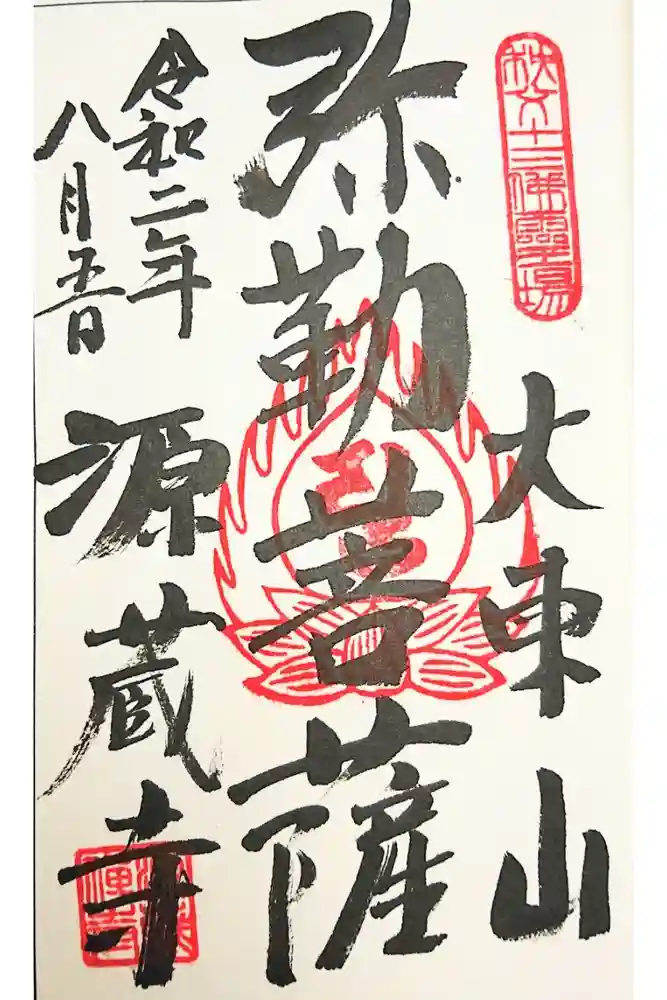 秩父十三佛霊場
大東山
弥勒菩薩
令和二年
八月五日
源蔵寺